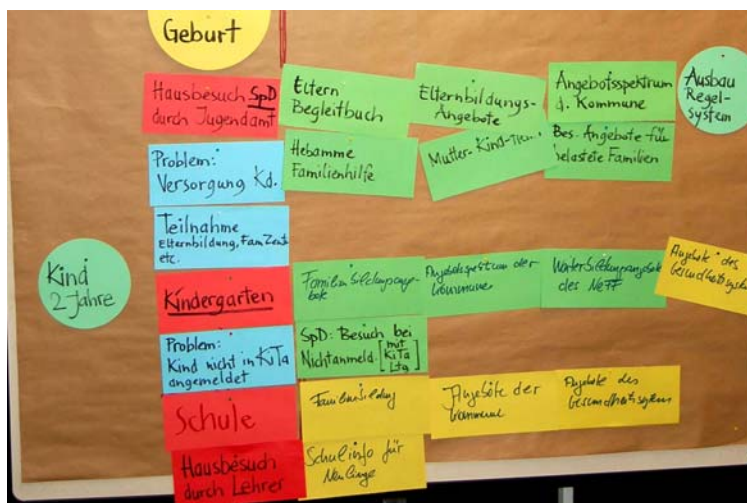 Geburt
Hausbesuch SpD
durch Jugendamt
Eltern
Begleitbuch
Elternbildungs-
Angebote
Angebotsspektrum
d. Kommune
Ausbau
Regel-
system
Problem:
Versorgung Kd.
Hebamme
Familienhilfe
Mutter-Kind-
Bes. Angebote für
belastete Familien
Teilnahme
Elternbildung, FamZent
etc.
Kind
2 Jahre
Kindergarten
Familienbildungsange-
bote
Angebotsspektrum der
Kommune
des NeFF
Angebote des
Gesundheitssystems
Problem:
Kind nicht in KiTa
angemeldet
SpD: Besuch bei
Nichtanmeld. [mit
KiTa
Ltg]
Schule
Familienbildung
Angebote der
Kommune
Angebote des
Gesundheitssystems
Hausbesuch
durch Lehrer
Schulinfo für
Neulinge